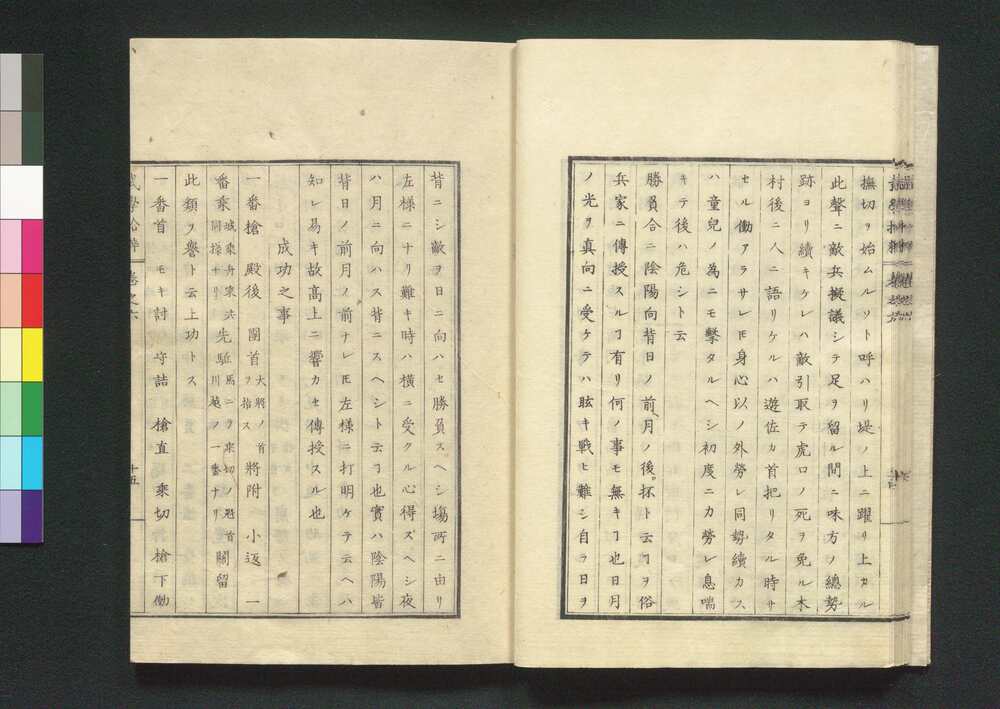 撫切ヲ始ムルソト呼ハリ堤ノ上ニ躍リ上カル
此聲ニ敵兵擬議シテ足ヲ留ル間ニ味方ノ總勢
跡ヨリ續キケレハ敵引取テ虎口ノ死ヲ免ル木
村後ニ人ニ語リケルハ遊佐カ首把リタル時サ
セル働アラサレ𪜈身心以ノ外勞レ同勢續カス
ハ童兒ノ為ニモ擊タルヘシ初度ニカ勞レ息喘
キテ後ハ危シト云
勝負合ニ陰陽向背日ノ前月ノ後抔ト云ヿヲ俗
兵家ニ傳授スルヿ有リ何ノ事モ無キヿ也日月
ノ光ヲ真向ニ受ケテハ眩キ戰ヒ難シ自ラ日ヲ
背ニシ敵ヲ日ニ向ハセ勝負スヘシ塲所ニ由リ
左様ニナリ難キ時ハ横ニ受クル心得ズヘシ夜
ハ月ニ向ハス背ニスヘシト云ヿ也實ハ陰陽皆
背日ノ前月ノ前ナレ𪜈左様ニ打明ケテ云ヘハ
知レ易キ故高上ニ響カセ傳授スル也
成功之事
一番槍 殿後 團首 大將ノ首ヲ指ス 將附 小返 一
番乘 城乘舟乘共開採ナリ 先駈 馬ニテ乘切ノ魁首川越ノ一番ナリ 關留
此類ヲ譽ト云上功トス
一番首 モキ討 守詰 槍直 乘切 槍下働
卷之六
十五